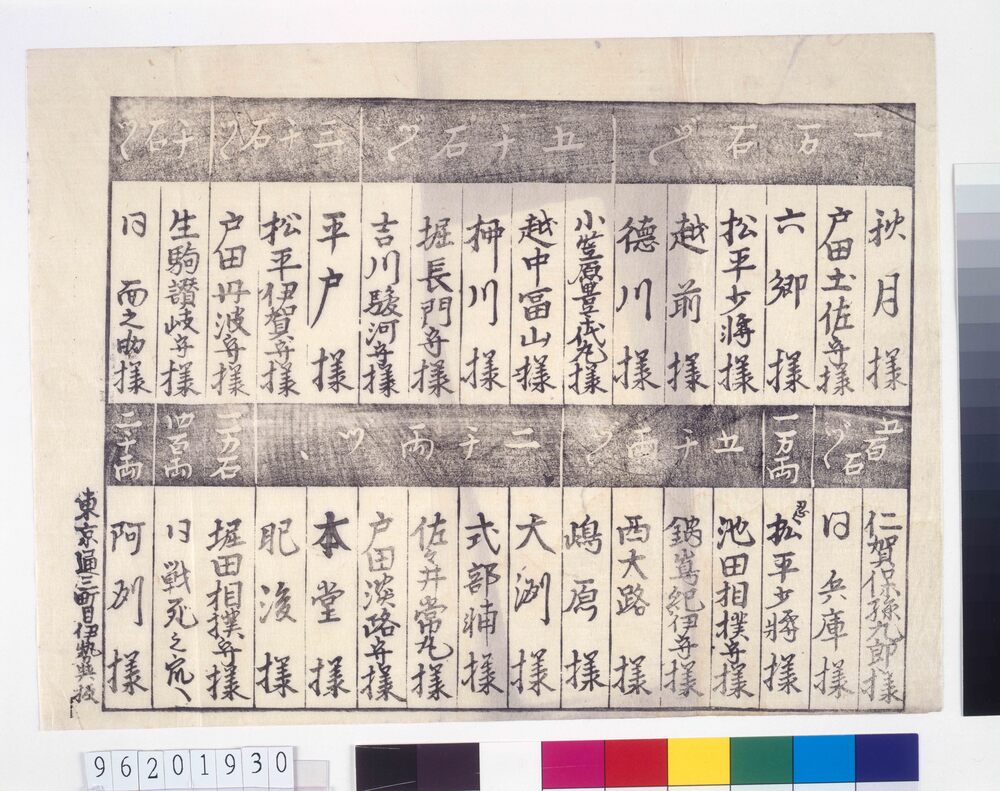 一万石ヅヽ
秋月様
戸田土佐守様
六郷様
松平少将様
越前様
五千石ヅヽ
徳川様
小笠原豊千代丸様
越中富山様
柳川様
堀長門守様
三千石ヅヽ
吉川駿河守様
平戸様
松平伊賀守様
千石ヅヽ
戸田丹波守様
生駒讃岐守様
同 為之助様
五百石ヅヽ
仁賀保孫九郎様
同 兵庫様
一万両
忍 松平少将様
五千両ヅヽ
池田相模守様
鍋嶌紀伊守様
西大路様
嶋原様
二千両ヅヽ
大洲様
式部輔様
佐々井常丸様
戸田淡路守様
本堂様
肥後様
一万石
堀田相撲守様
四百両
同 戦死之家へ
二千両
阿州様
東京通三町目伊勢興板
96201930